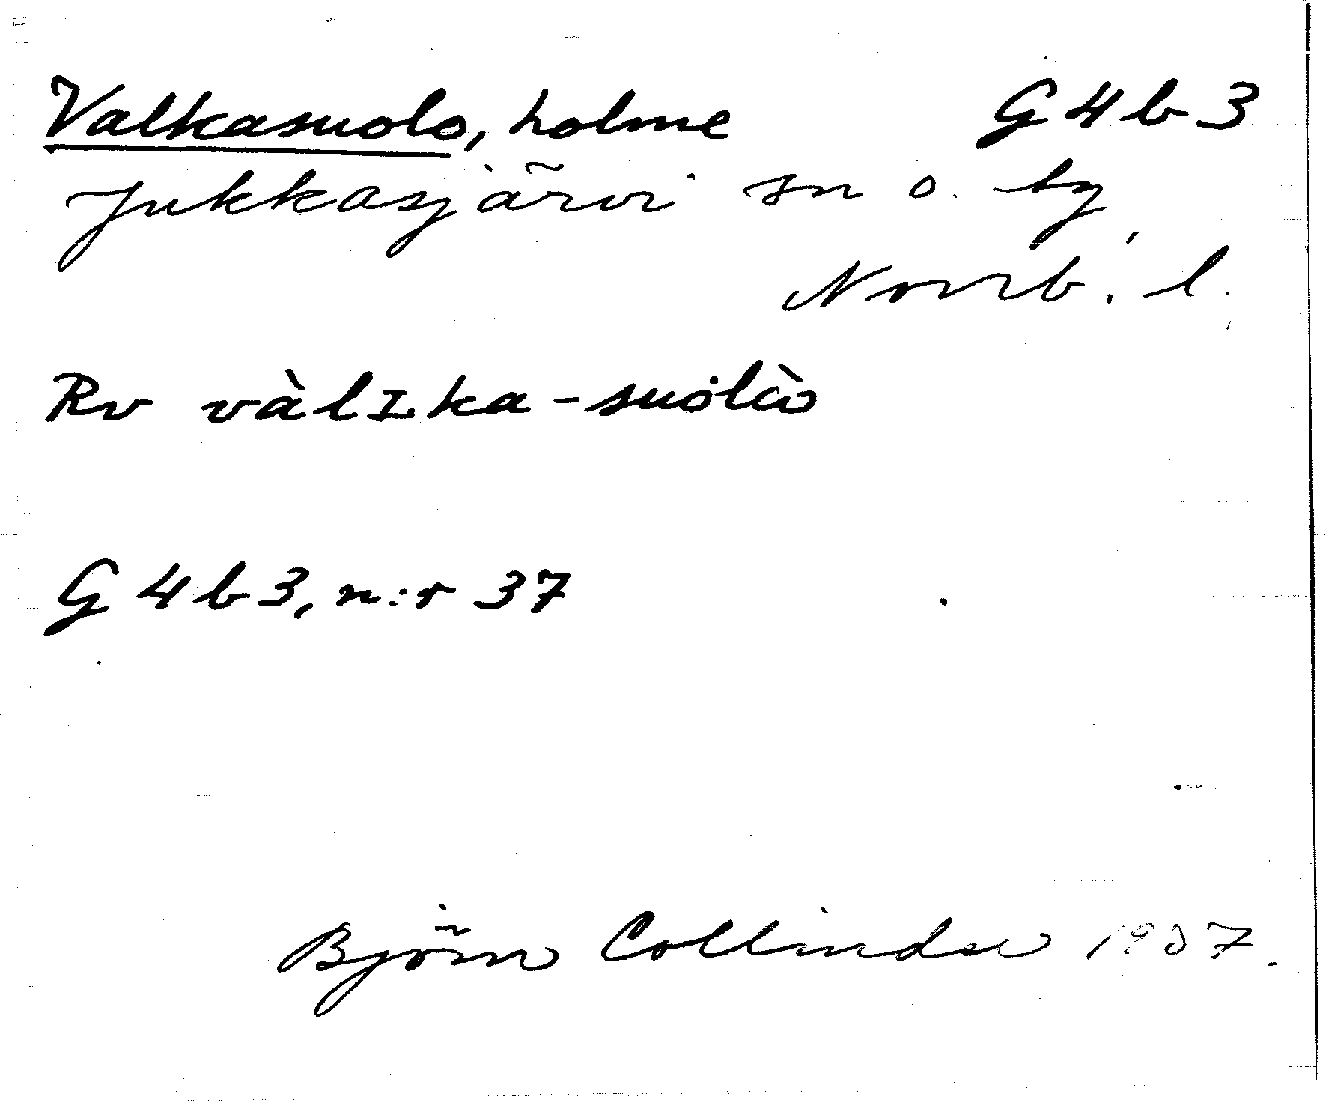 Valkasuolo, holme G 4 b 3
Jukkasjärvi sn o. by,
Norrb. l.
Rv vàlɪka-suolò
G 4 b 3, n:r 37
Björn Collinder 1937.